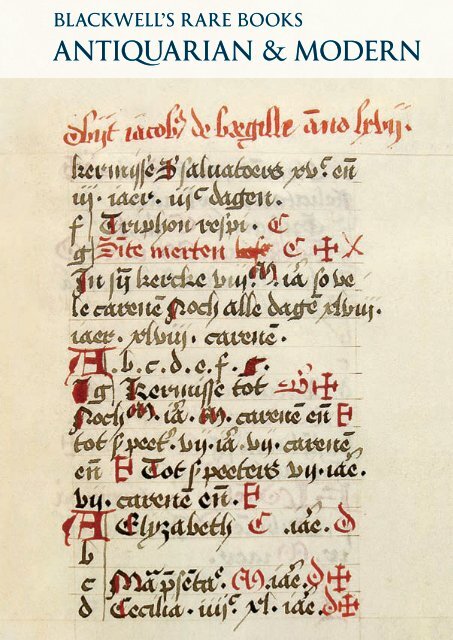 BLACKWELL'S RARE BOOKS
ANTIQUARIAN & MODERN
Obijt iacob9 de bxgille ãno lxvij.
kermisse S saluatoers xvᶜ. eñ
iij. iaer. iijᶜ dagen.
f Triphon respi. C
g Sñte merten C ✠ X
In sijn kercke viijᴹ. iã so ve
le carenẽ Noch alle dagẽ xlviij.
iaer. xlviij. carenẽ.
A. b. c. d. e. f. g.
g Kermisse tot ✠
Noch M. iã. M. carenẽ eñ F
tot s peetˢ. vij. iã. vij. carenẽ
eñ F Tot s peeters vij. iaẽ.
vij. carenẽ eñ. F
A Elyzabeth C .iaẽ. D
b
c Mã p̃sẽtaᵒ. M. iaẽ. D✠
d Cecilia. iiijᶜ. xl. iaẽ. D✠